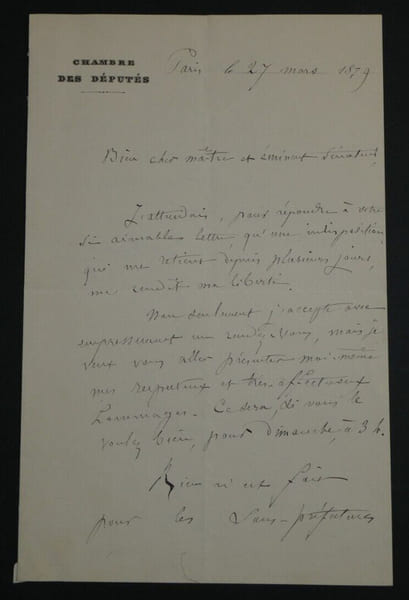 CHAMBRE
DES DÉPUTÉS
Paris le 27 mars 1879
Bien cher maître et éminent Sénateur,
J'attendais, pour répondre à votre
si aimable lettre, qu'une indisposition,
qui me retient depuis plusieurs jours,
me rendît ma liberté.
Non seulement j'accepte avec
empressement un rendez-vous, mais je
veux vous aller présenter moi-même
mes respectueux et très affectueux
hommages. Ce sera, si vous le
voulez bien, pour dimanche, à 3 h.
Rien n'est fait
pour les Sous-préfectures